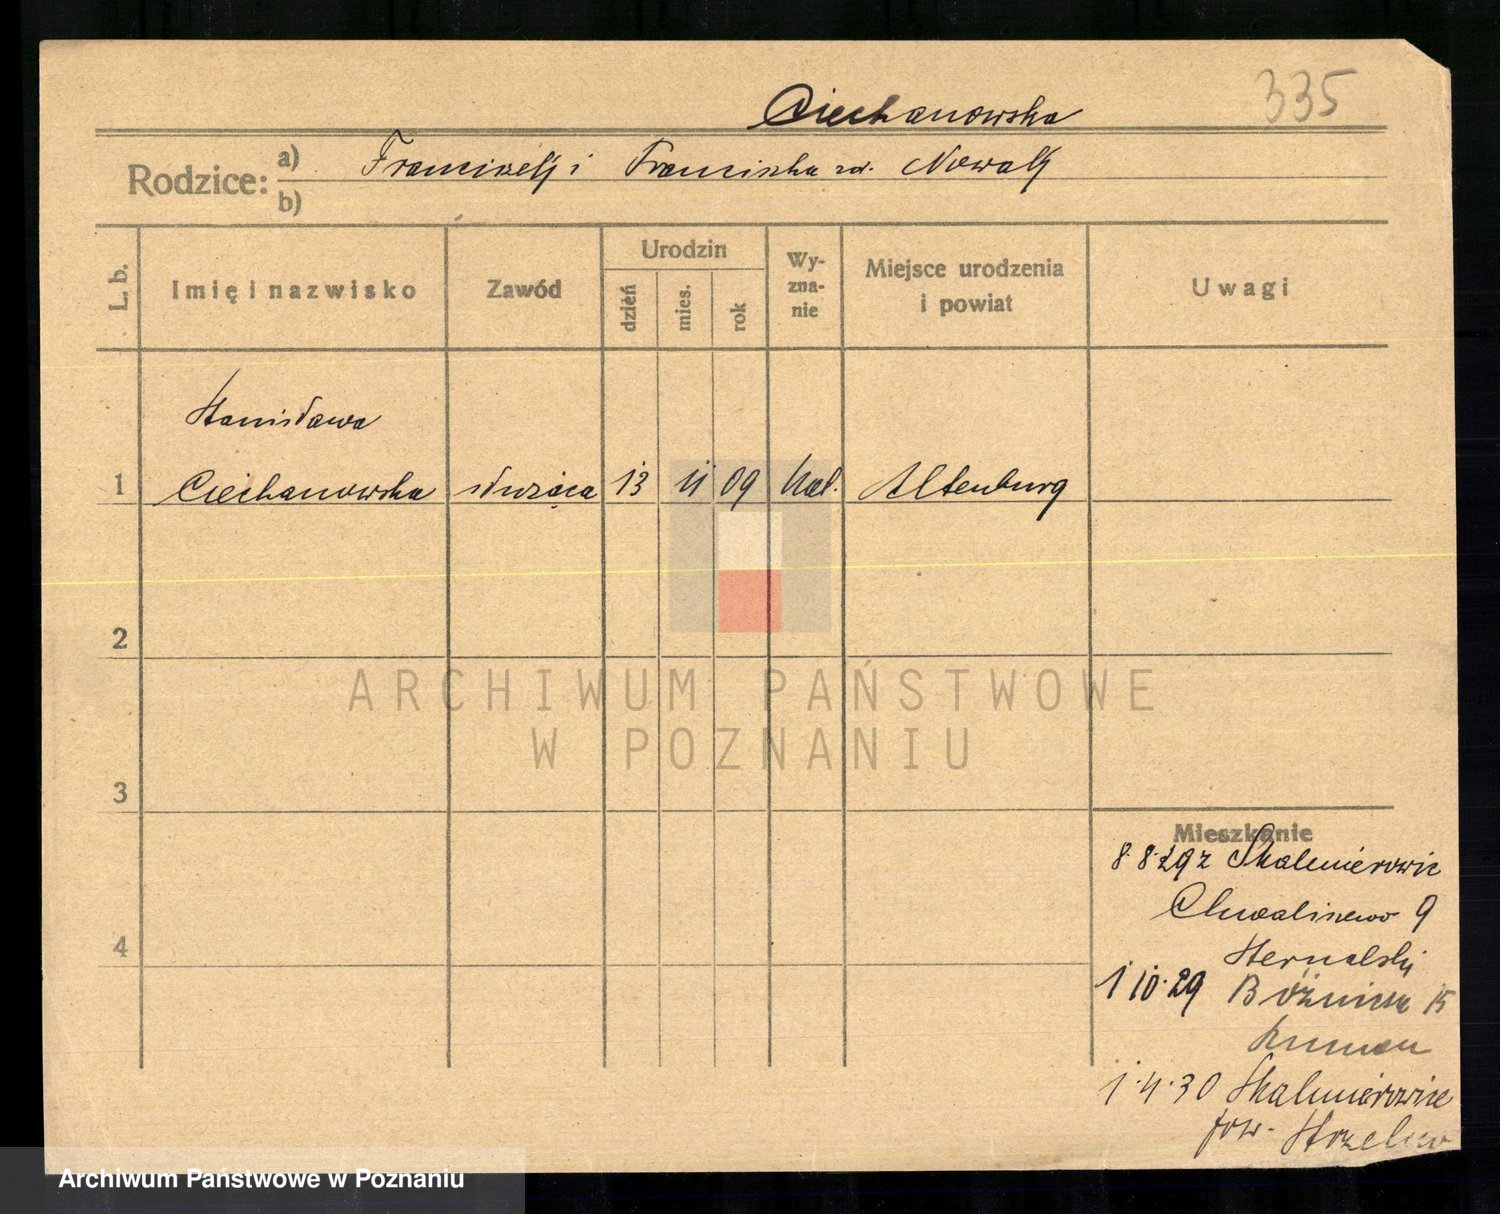 335
Ciechanowska
Rodzice: a) Franciszek i Franciszka zd. Nowak
b)
L. b.
Imię i nazwisko
Zawód
Urodzin
dzień
mies.
rok
Wy-
zna-
nie
Miejsce urodzenia
i powiat
Uwagi
Stanisława
1 Ciechanowska służąca 13 11 09 kat. Altenburg
2
3
4
Mieszkanie
8.8.29 z Skalmierowic
Chwaliszewo 9
1.10.29 Bóżnicza 15
1.4.30 Skalmierowice
pow. Strzelno
ARCHIWUM PAŃSTWOWE
W POZNANIU
Archiwum Państwowe w Poznaniu